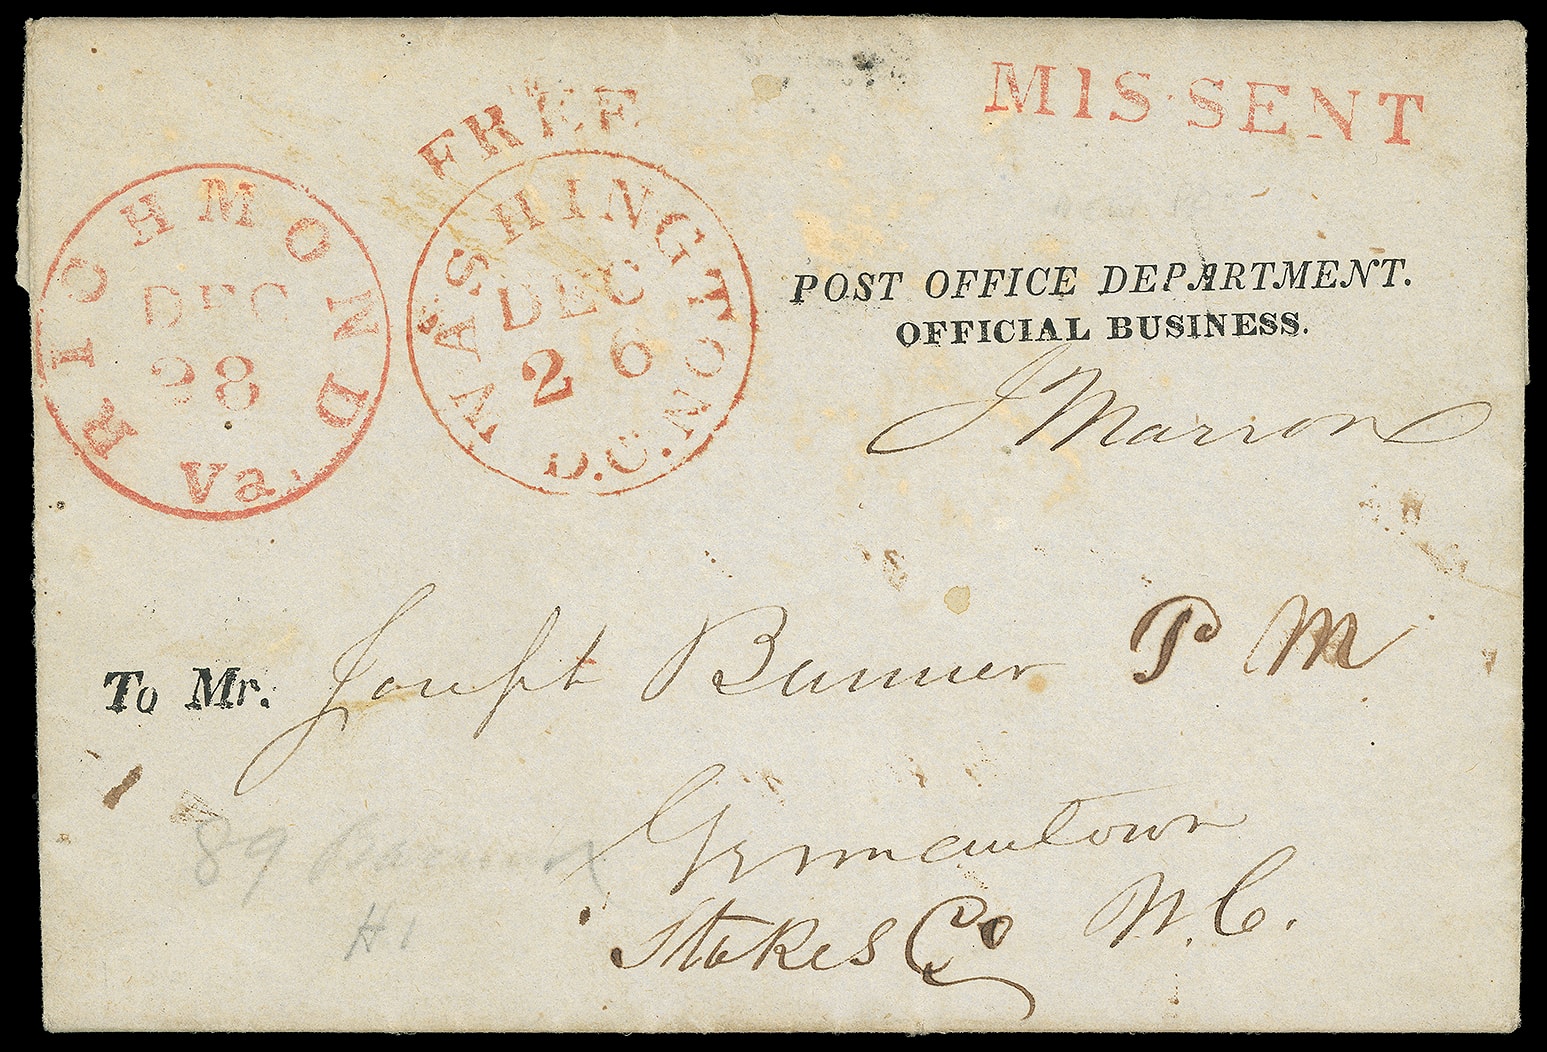 MISSENT
FREE
RICHMOND
DEC
28
Va.
WASHINGTON
DEC
26
D.C.
POST OFFICE DEPARTMENT.
OFFICIAL BUSINESS.
J Marron
To Mr. Joseph Banner P M
Germantown
Stokes Co N.C.
89
H1